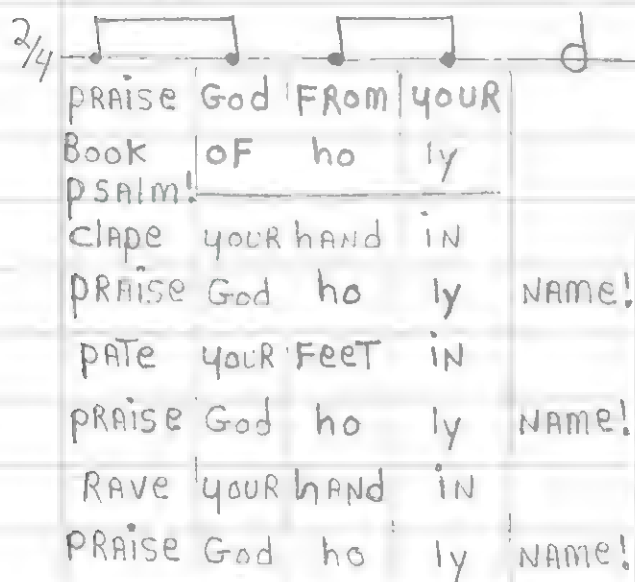 2/4
PRAise God FROM YOUR
Book OF ho ly
PSAlm!
clApe YOUR hAND iN
PRAise God ho ly NAMe!
PATe YOUR FeeT iN
PRAise God ho ly NAMe!
RAve YOUR hAND iN
PRAise God ho ly NAMe!